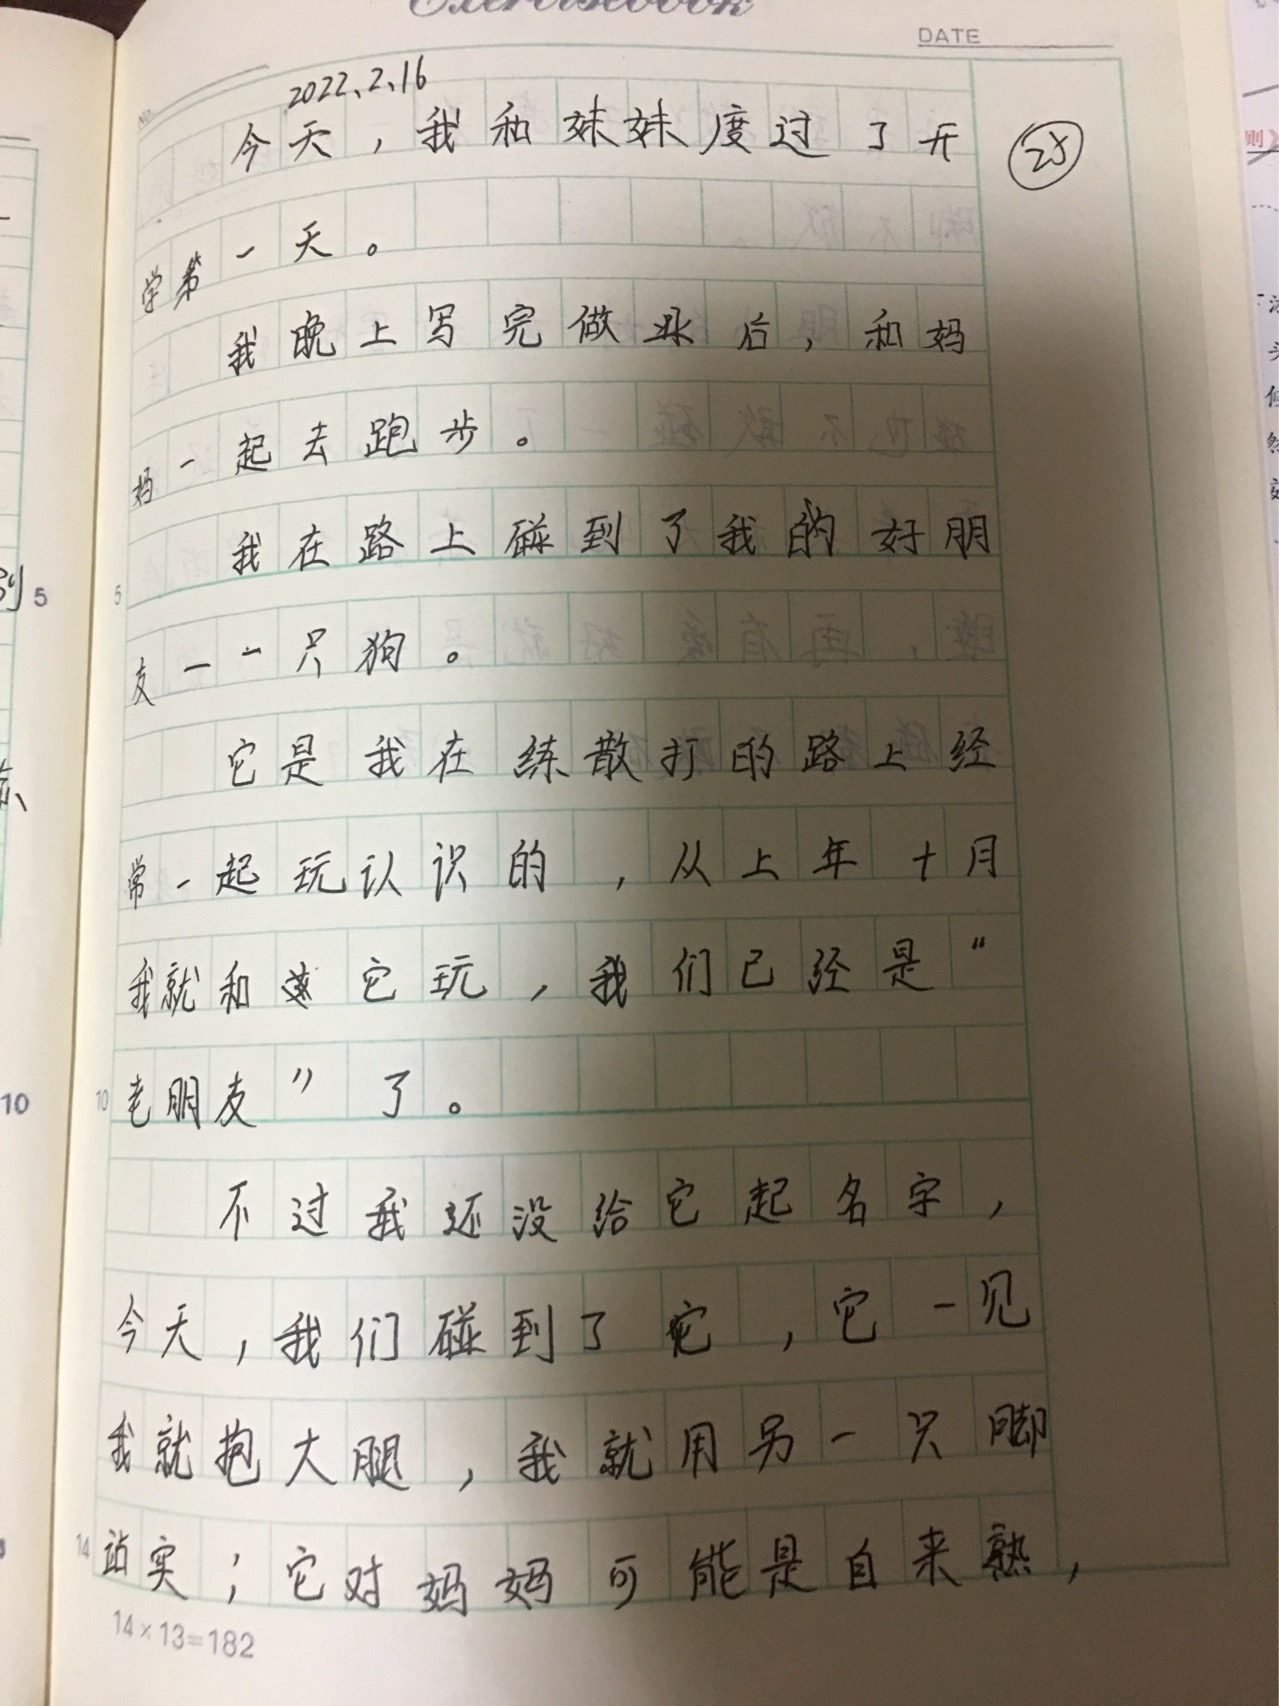 Exercisebook
DATE
NO.
2022、2、16
今天，我和妹妹度过了开
25
学第一天。
我晚上写完做业后，和妈
妈一起去跑步。
我在路上碰到了我的好朋
5
友一一只狗。
它是我在练散打的路上经
常一起玩认识的，从上年十月
我就和它玩，我们已经是“
10
老朋友”了。
不过我还没给它起名字，
今天，我们碰到了它，它一见
我就抱大腿，我就用另一只脚
14
站实；它对妈妈可能是自来熟，
14×13=182
5
10
则》